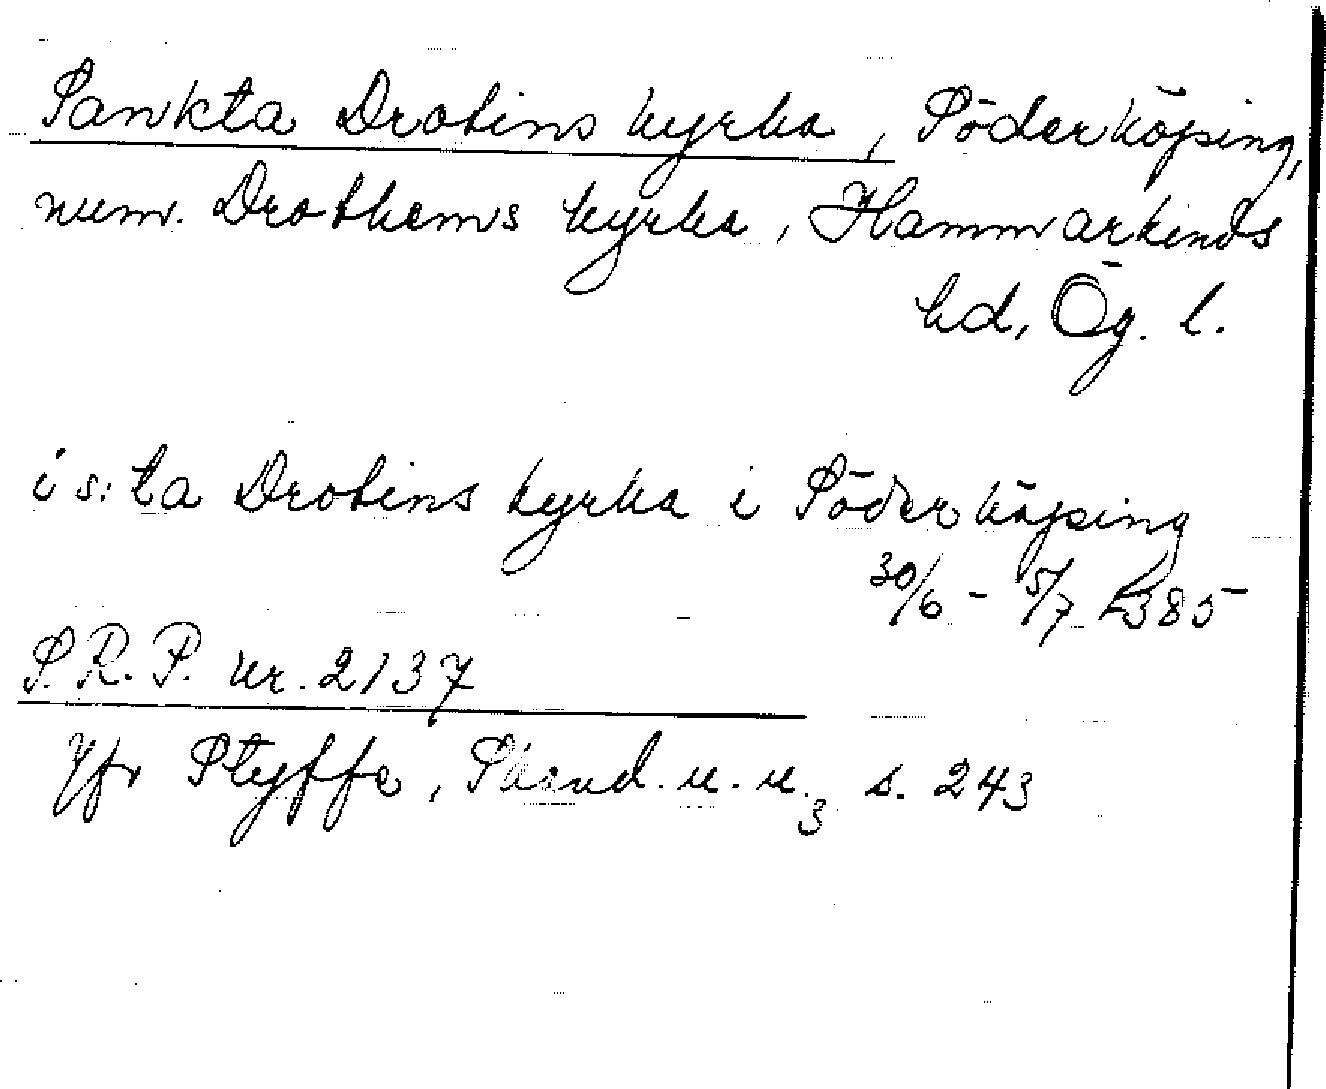 Sankta Drotins kyrka, Söderköping,
num. Drothems kyrka, Hammarkinds
hd, Ög. l.
i s:ta Drotins kyrka i Söderköping
30/6 - 5/7 1385
S.R.P. nr. 2137
Jfr Styffe, Skand. u. u.3 s. 243